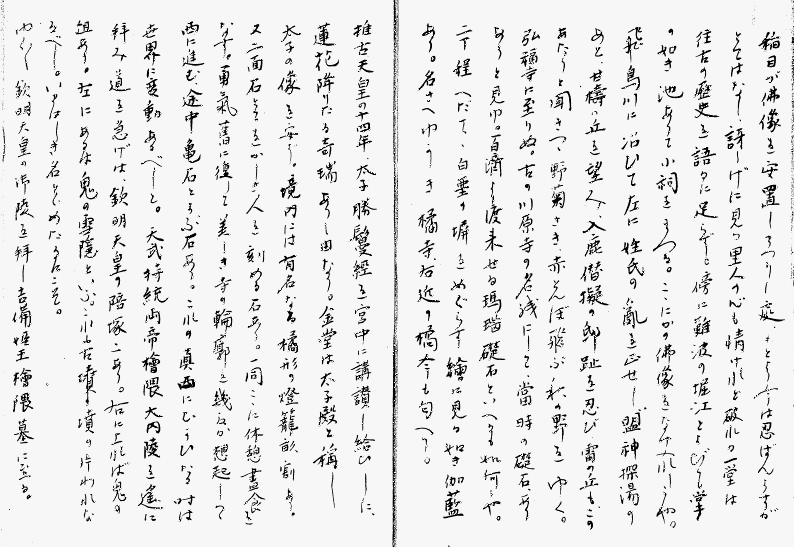 稲目が佛像を安置しまつりし處
とてはなし、訝しげに見る里人の心も情けれど破れの一堂は
往古の歴史を語るに足らず。傍に難波の堀江とよびて掌
の如き池ありて小祠をまつる。ここにかの佛像をなげ入れしとや。
飛鳥川に沿ひて左に姓氏の亂を正せし盟神探湯の
あと、甘檮の丘を望み、入鹿僭擬の邸趾を忍び雷の丘もこの
あたりと聞きつつ野菊さき、赤とんぼ飛ぶ秋の野をゆく。
弘福寺に至りぬ。古の川原寺の名残にして當時の礎石あり
ありと見ゆ。百済より渡来せる瑪瑙礎石といへるも如何にや。
二丁程へだて白堊の塀をめぐらす繪に見る如き伽藍
あり。名さへゆかしき橘寺、右近の橘今も匂へり。
推古天皇の十四年太子勝鬘經を宮中に講讃し給ひしに、
蓮花降りたる奇瑞ありし由なり。金堂は太子殿と稱し
太子の像を安ず。境内には有名なる橘形の燈籠畝割あり。
又二面石とて人を刻める石あり。一同ここに休憩晝食を
なす。勇氣舊に復して美しき寺の輪廓を幾度か想起して
西に進む途中亀石とよぶ石あり。これの真西にむかひなる時は
世界に変動あるべしと。天武持統両帝檜隈大内陵を遙に
拝み道を急げば、欽明天皇の陪塚二あり。右に上れば鬼の
俎あり。左にあるは鬼の雪隠といふ、これも古墳の片われな
るべし。いまはしき名をとどめたるにこそ。
やがて欽明天皇の御陵を拝し吉備姫王檜隈墓に至る。